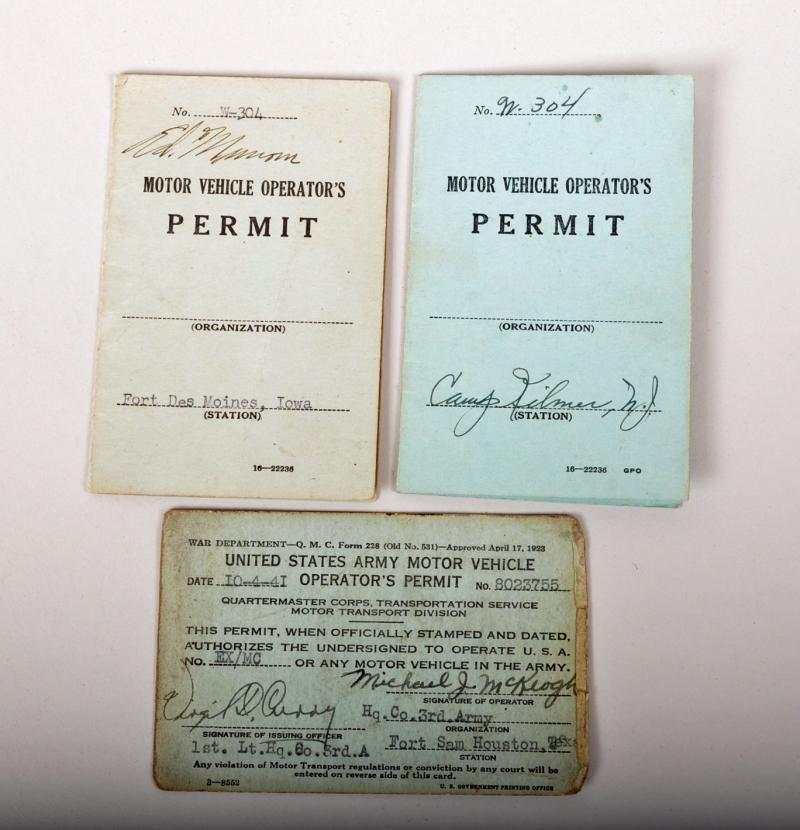 No. W-304
Ed. Marson
MOTOR VEHICLE OPERATOR'S
PERMIT
(ORGANIZATION)
Fort Des Moines, Iowa
(STATION)
16—22236
No. W-304
MOTOR VEHICLE OPERATOR'S
PERMIT
(ORGANIZATION)
Camp Kilmer, N.J.
(STATION)
16—22236 GPO
WAR DEPARTMENT—Q. M. C. Form 228 (Old No. 531)—Approved April 17, 1923
UNITED STATES ARMY MOTOR VEHICLE
DATE 10-4-41 OPERATOR'S PERMIT No. 8023755
QUARTERMASTER CORPS, TRANSPORTATION SERVICE
MOTOR TRANSPORT DIVISION
THIS PERMIT, WHEN OFFICIALLY STAMPED AND DATED,
AUTHORIZES THE UNDERSIGNED TO OPERATE U. S. A.
NO. EX/MC OR ANY MOTOR VEHICLE IN THE ARMY.
Michael J. McKeogh
SIGNATURE OF OPERATOR
Hq.Co.3rd.Army
ORGANIZATION
SIGNATURE OF ISSUING OFFICER
1st. Lt.Hq.Co.3rd.A Fort Sam Houston, Texas
STATION
Any violation of Motor Transport regulations or conviction by any court will be
entered on reverse side of this card.
3—8552
U. S. GOVERNMENT PRINTING OFFICE